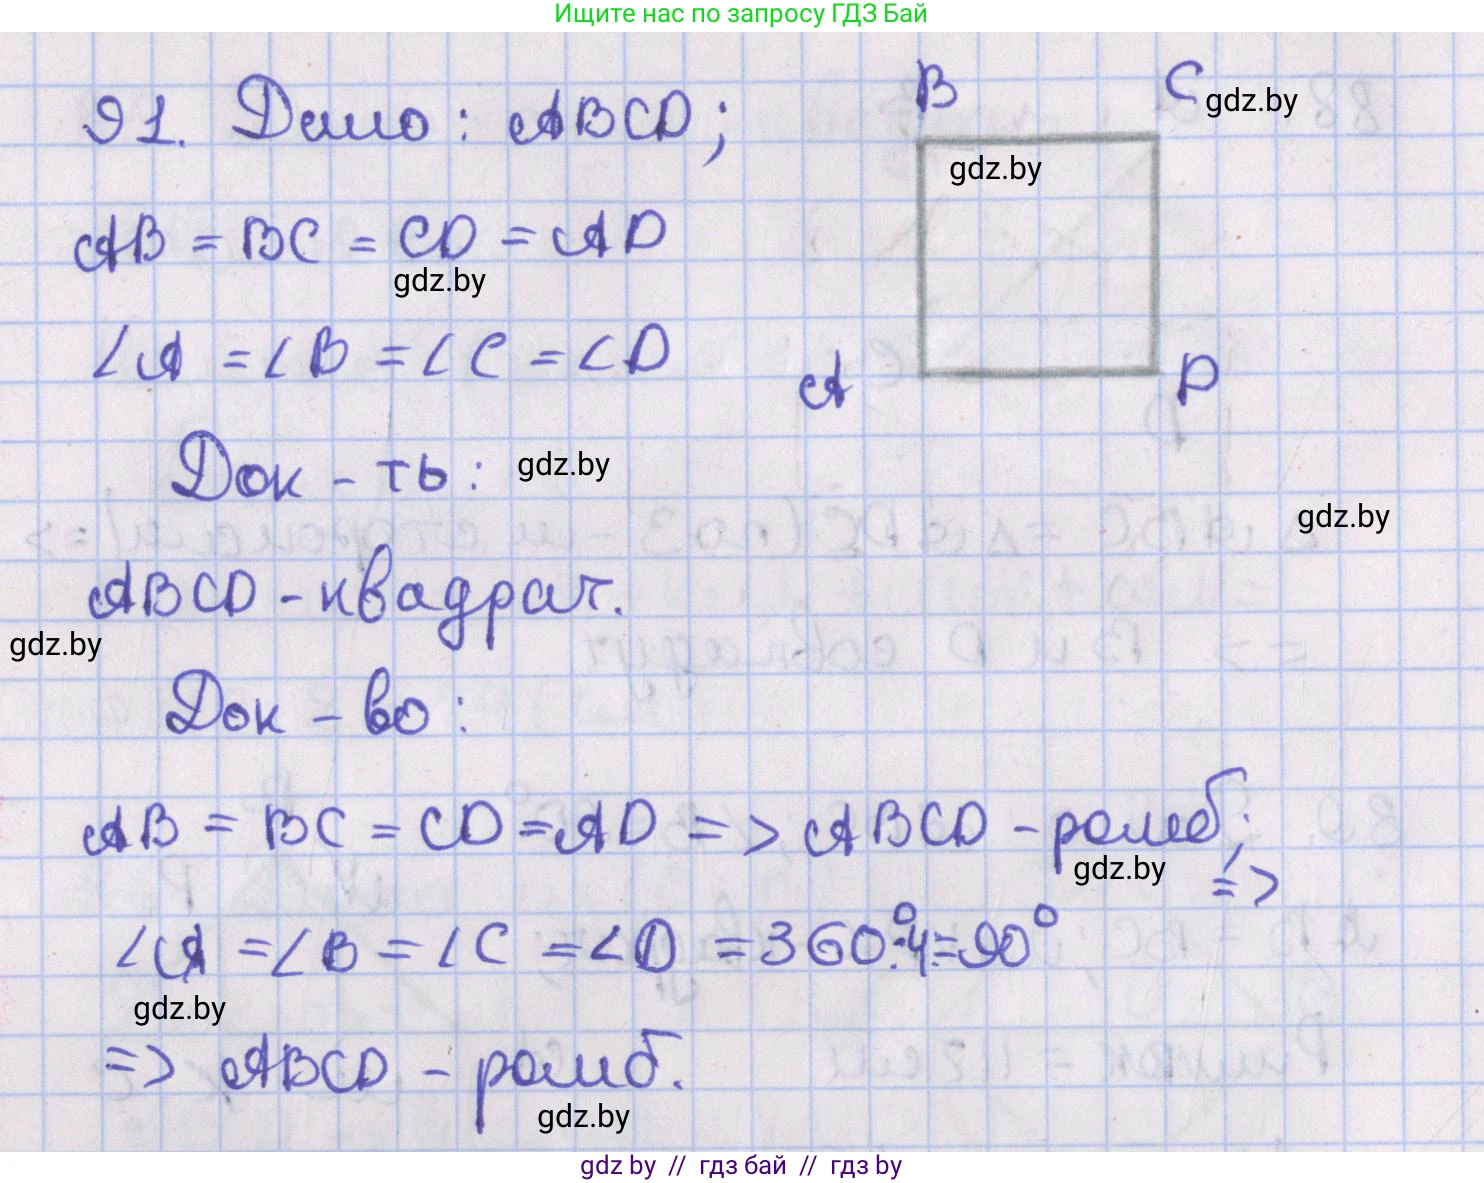 Ищите нас по запросу ГДЗ Бай
91. Дано: ABCD;
B
C
gdz.by
gdz.by
AB = BC = CD = AD
gdz.by
∠A = ∠B = ∠C = ∠D
A
D
Док - ть:
gdz.by
gdz.by
ABCD - квадрат.
gdz.by
Док - во:
AB = BC = CD = AD => ABCD - ромб;
gdz.by
=>
∠A = ∠B = ∠C = ∠D = 360°:4=90°
gdz.by
=> ABCD - ромб.
gdz.by
gdz by // гдз бай // гдз by